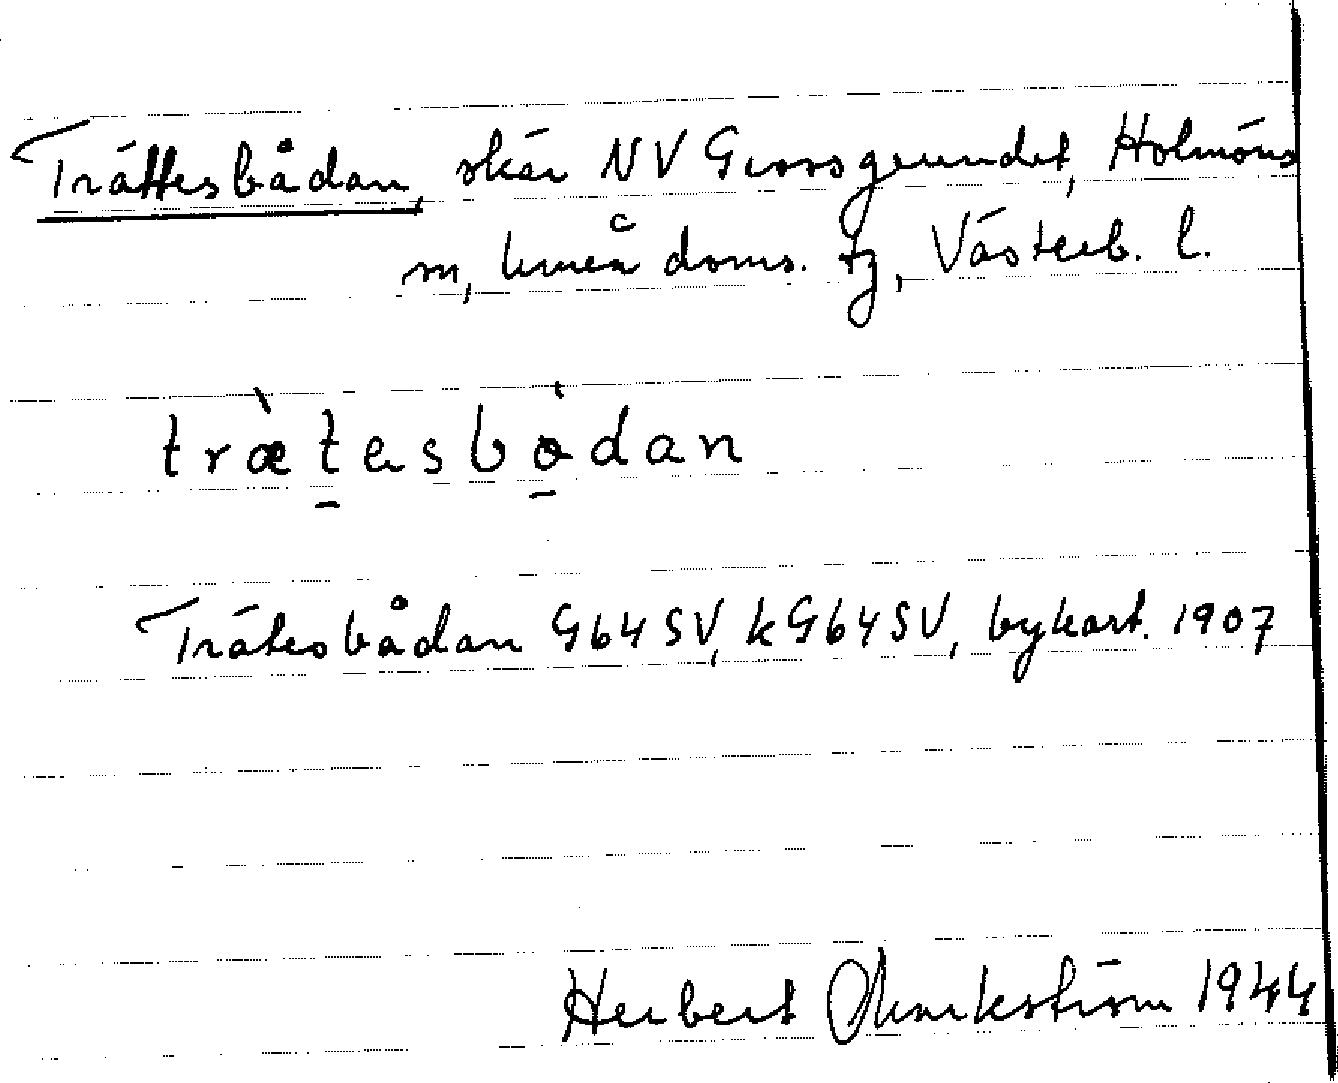 Trättesbådan, skär NV Grossgrundet, Holmöns
m, Umeå doms. tg, Västerb. l.
træ̀t̠esbò̠dan
Trätesbådan G64SV, kG64SV, bykart. 1907
Herbert Markström 1944